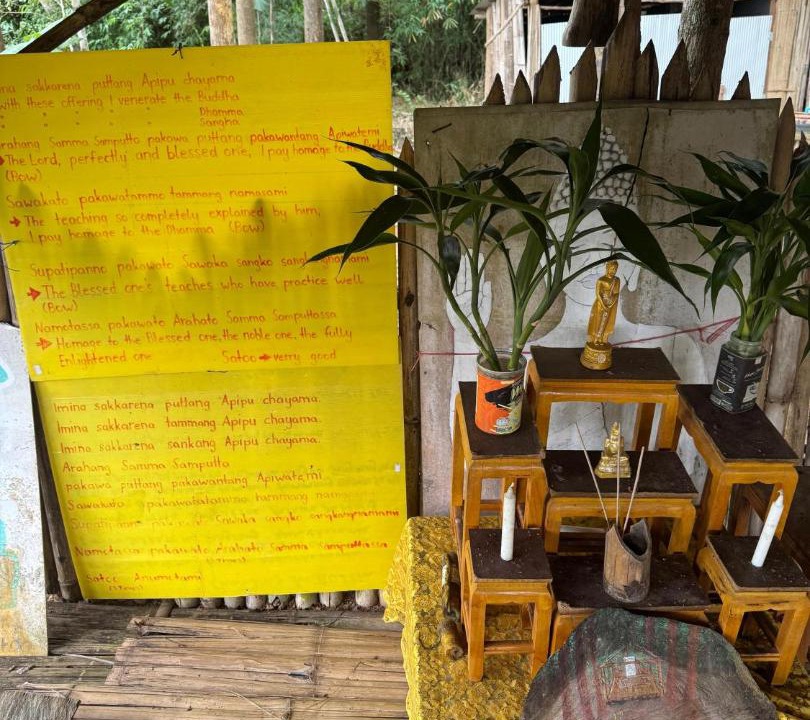 sakkarena puttang Apipu chayama
with these offering I venerate the Buddha
" " " " " Dhamma
Sangha
arahang Samma Samputto pakawa puttang pakawantang Apiwatemi
→ The Lord, perfectly and blessed one, I pay homage to the
(Bow)
Sawakato pakawatammo tammang namasami
→ The teaching so completely explained by him,
I pay homage to the Dhamma (Bow)
Supatipanno pakawato Sawoka sangko
→ The Blessed one's teaches who have practice well
(Bow)
Nametassa pakawato Arahato Samma Samputtassa
→ Homage to the Blessed one, the noble one, the fully
Enlightened one Satoo → verry good
Imina sakkarena puttang Apipu chayama.
Imina sakkarena tammang Apipu chayama.
Imina sakkarena sankang Apipu chayama.
Arahang Samma Samputta
pakawa puttang pakawantang Apiwatemi
tammang
Sawaka sangko
Nametassa pakawato Arahato Samma Samputtassa
Satoo Anumotami